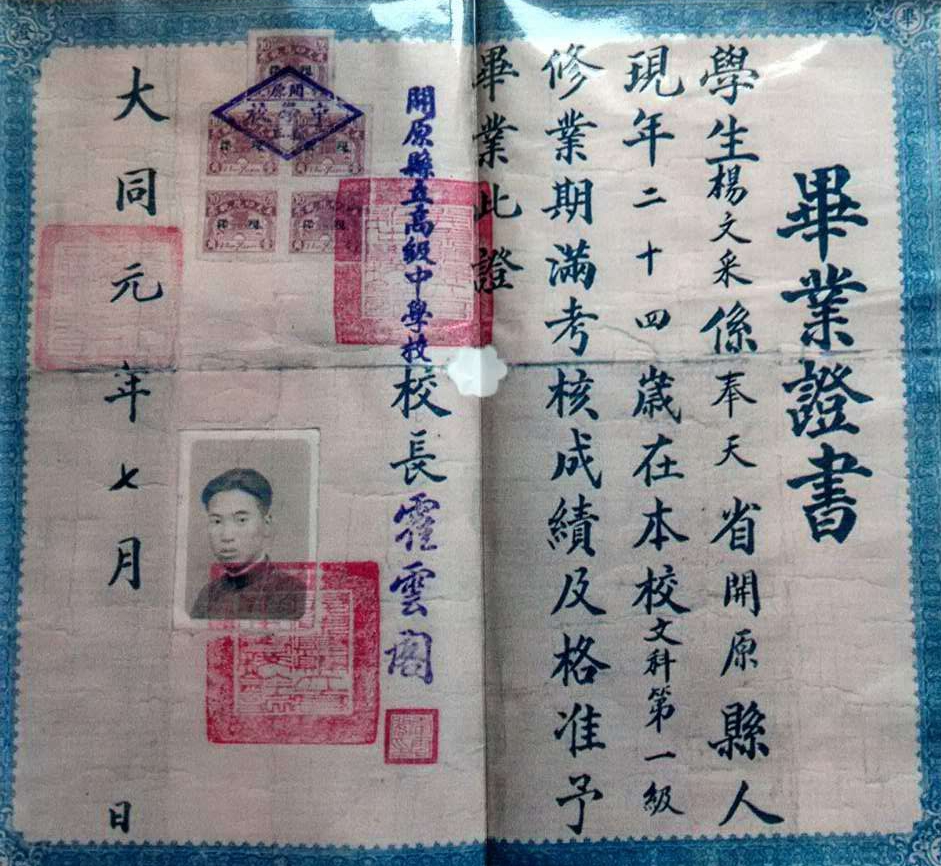 畢業證書
學生楊文采係奉天省開原縣人
現年二十四歲在本校文科第一級
修業期滿考核成績及格准予
畢業此證
開原縣立高級中學校校長霍雲閣
開原
中學校
大同元年七月 日